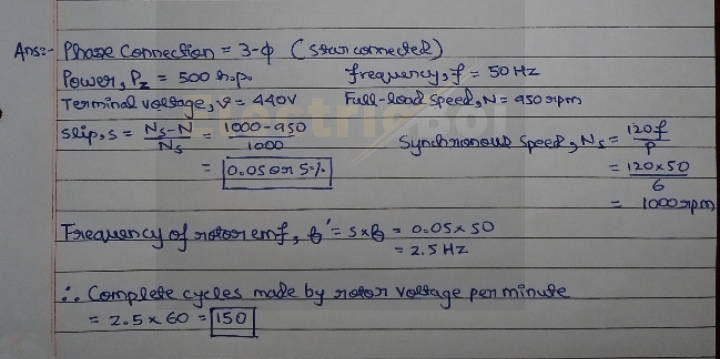 Ans:- Phase Connection = 3-ϕ (star connected)
Power, P₂ = 500 h.p. frequency, f = 50 Hz
Terminal voltage, V = 440V Full-load speed, N = 950 rpm
slip, s = Ns-N/Ns = 1000-950/1000 Synchronous Speed, Ns = 120f/P
= 0.05 or 5% = 120×50/6
= 1000 rpm
Frequency of rotor emf, f' = s×f = 0.05×50
= 2.5 Hz
∴ Complete cycles made by rotor voltage per minute
= 2.5 × 60 = 150